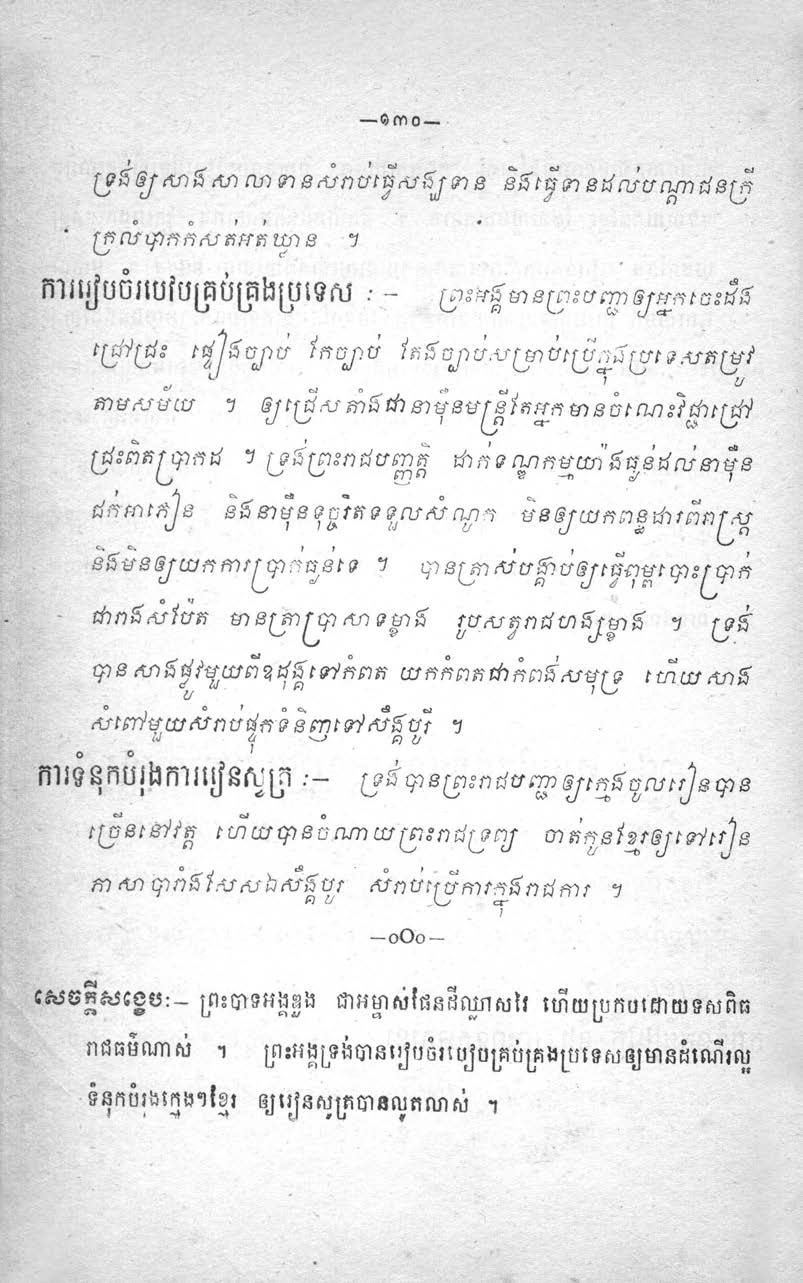 —១៣០—
ទ្រង់ឲ្យសាងសាលាទានសំរាប់ធ្វើសង្ឃទាន និងធ្វើទានដល់បណ្តាជនក្រី
ក្រលំបាកកំសតអត់ឃ្លាន ។
ការរៀបចំរបៀបគ្រប់គ្រងប្រទេស : — ព្រះអង្គមានព្រះបញ្ជាឲ្យអ្នកចេះដឹង
ជ្រៅជ្រះ ផ្ទៀងច្បាប់ កែច្បាប់ តែងច្បាប់សម្រាប់ប្រើក្នុងប្រទេសតម្រូវ
តាមសម័យ ។ ឲ្យជ្រើសតាំងជានាម៉ឺនមន្ត្រីតែអ្នកមានចំណេះវិជ្ជាជ្រៅ
ជ្រះពិតប្រាកដ ។ ទ្រង់ព្រះរាជបញ្ញត្តិ ដាក់ទណ្ឌកម្មយ៉ាងធ្ងន់ដល់នាម៉ឺន
ជក់អាភៀន និងនាម៉ឺនទុច្ចរិតទទួលសំណូក មិនឲ្យយកពន្ធដារពីរាស្ត្រ
និងមិនឲ្យយកការប្រាក់ធ្ងន់ទេ ។ បានត្រាស់បង្គាប់ឲ្យធ្វើពុម្ពបោះប្រាក់
ជារាងសំប៉ែត មានត្រាប្រាសាទម្ខាង រូបសត្វរាជហង្សម្ខាង ។ ទ្រង់
បានសាងផ្លូវមួយពីឧដុង្គទៅកំពត យកកំពតជាកំពង់សមុទ្រ ហើយសាង
សំពៅមួយសំរាប់ផ្ទុកទំនិញទៅសឹង្គបូរី ។
ការទំនុកបំរុងការរៀនសូត្រ :— ទ្រង់បានព្រះរាជបញ្ជាឲ្យក្មេងចូលរៀនបាន
ច្រើននៅវត្ត ហើយបានចំណាយព្រះរាជទ្រព្យ ចាត់កូនខ្មែរឲ្យទៅរៀន
ភាសាបារាំងសែសឯសឹង្គបូរ សំរាប់ប្រើការក្នុងរាជការ ។
—oOo—
សេចក្តីសង្ខេប:— ព្រះបាទអង្គឌួង ជាអម្ចាស់ផែនដីឈ្លាសវៃ ហើយប្រកបដោយទសពិធ
រាជធម៌ណាស់ ។ ព្រះអង្គទ្រង់បានរៀបចំរបៀបគ្រប់គ្រងប្រទេសឲ្យមានដំណើរល្អ
ទំនុកបំរុងក្មេងៗខ្មែរ ឲ្យរៀនសូត្របានលូតលាស់ ។